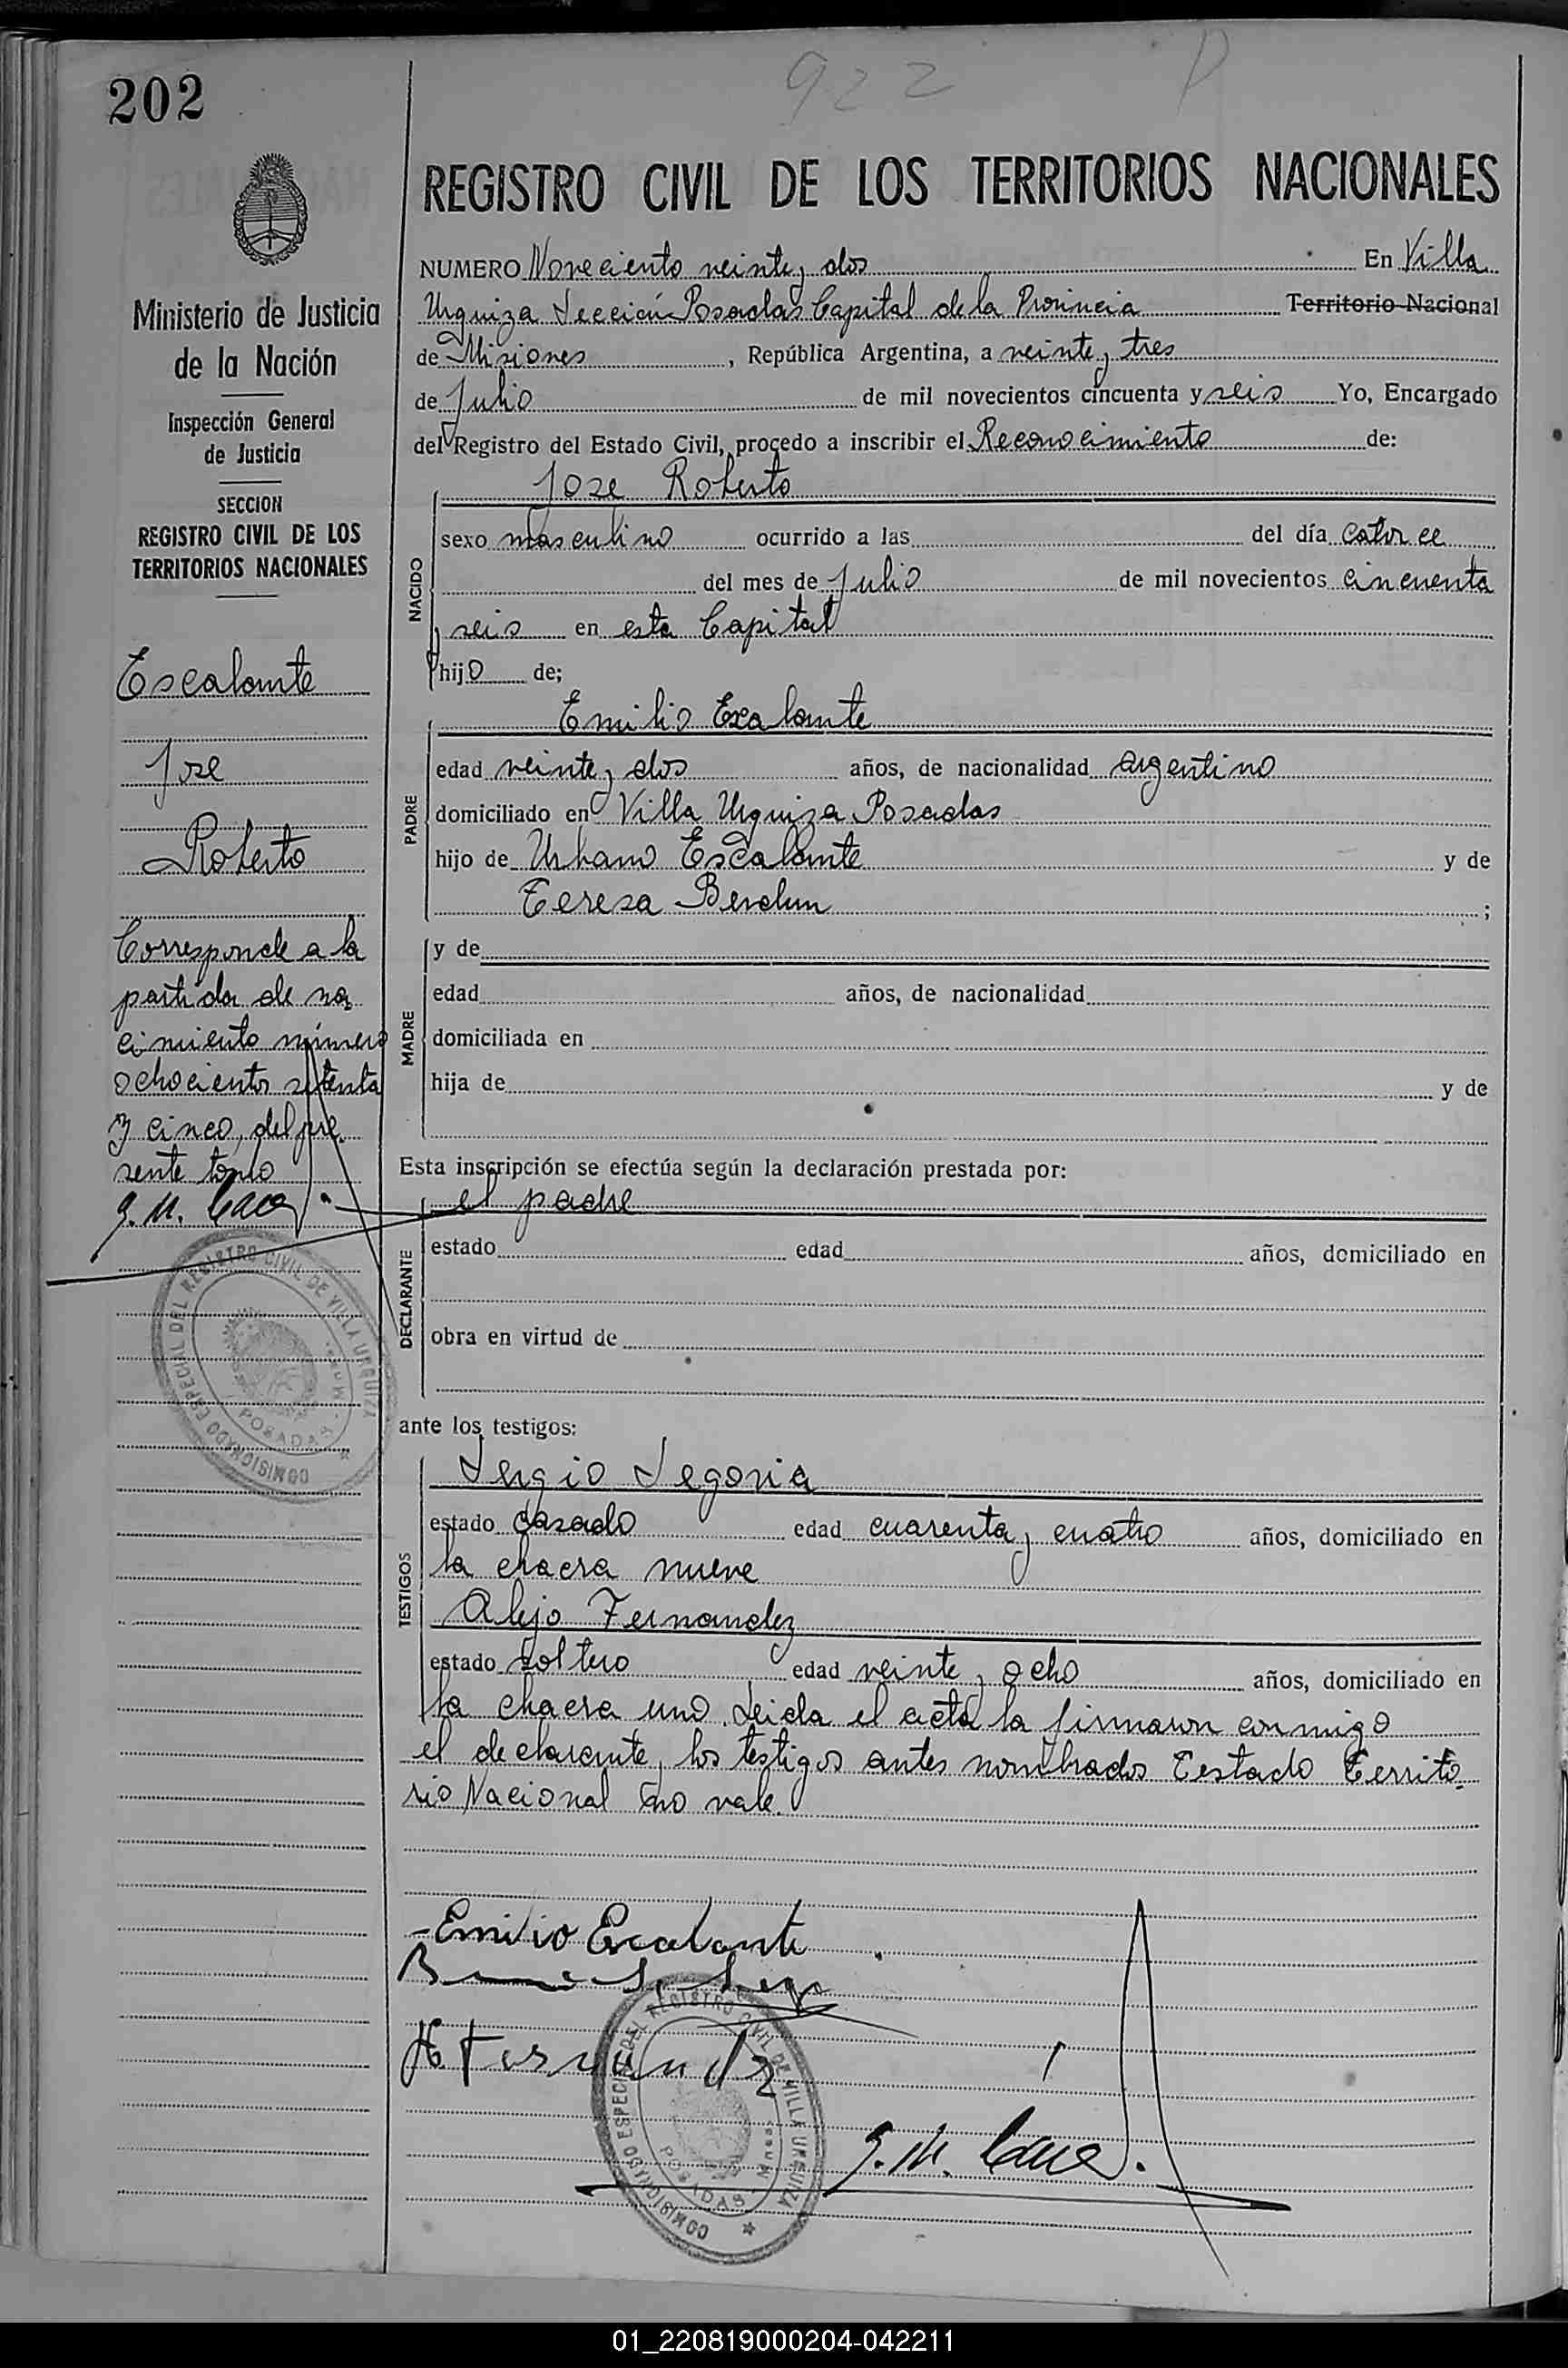 922
202
REGISTRO CIVIL DE LOS TERRITORIOS NACIONALES
Ministerio de Justicia
de la Nación
Inspección General
de Justicia
SECCION
REGISTRO CIVIL DE LOS
TERRITORIOS NACIONALES
Escalante
Jose
Roberto
Corresponde a la
partida de na
cimiento número
ochociento setenta
y cinco, del pre
sente tomo
REGISTRO CIVIL DE VILLA URQUIZA
COMISIONADO ESPECIAL DEL
POSADAS
NUMERO Noveciento veinte y dos En Villa
Urquiza Sección Posadas Capital de la Provincia Territorio Nacional
de Misiones, República Argentina, a veinte y tres
de Julio de mil novecientos cincuenta y seis Yo, Encargado
del Registro del Estado Civil, procedo a inscribir el Reconocimiento de:
Jose Roberto
NACIDO
sexo masculino ocurrido a las del día catorce
del mes de Julio de mil novecientos cincuenta
y seis en esta Capital
hijo de;
Emilio Escalante
PADRE
edad veinte y dos años, de nacionalidad argentino
domiciliado en Villa Urquiza Posadas
hijo de Urbano Escalante y de
Teresa Berdun ;
MADRE
y de
edad años, de nacionalidad
domiciliada en
hija de y de
Esta inscripción se efectúa según la declaración prestada por:
el padre
DECLARANTE
estado edad años, domiciliado en
obra en virtud de
ante los testigos:
Sergio Segovia
TESTIGOS
estado casado edad cuarenta y cuatro años, domiciliado en
la chacra nueve
Alejo Fernandez
estado soltero edad veinte y ocho años, domiciliado en
la chacra uno. Leida el acta la firmaron conmigo
el declarante y los testigos antes nombrados Testado Territo
rio Nacional no vale.
Emilio Escalante
REGISTRO CIVIL DE VILLA URQUIZA
COMISIONADO ESPECIAL DEL
POSADAS
01_220819000204-042211